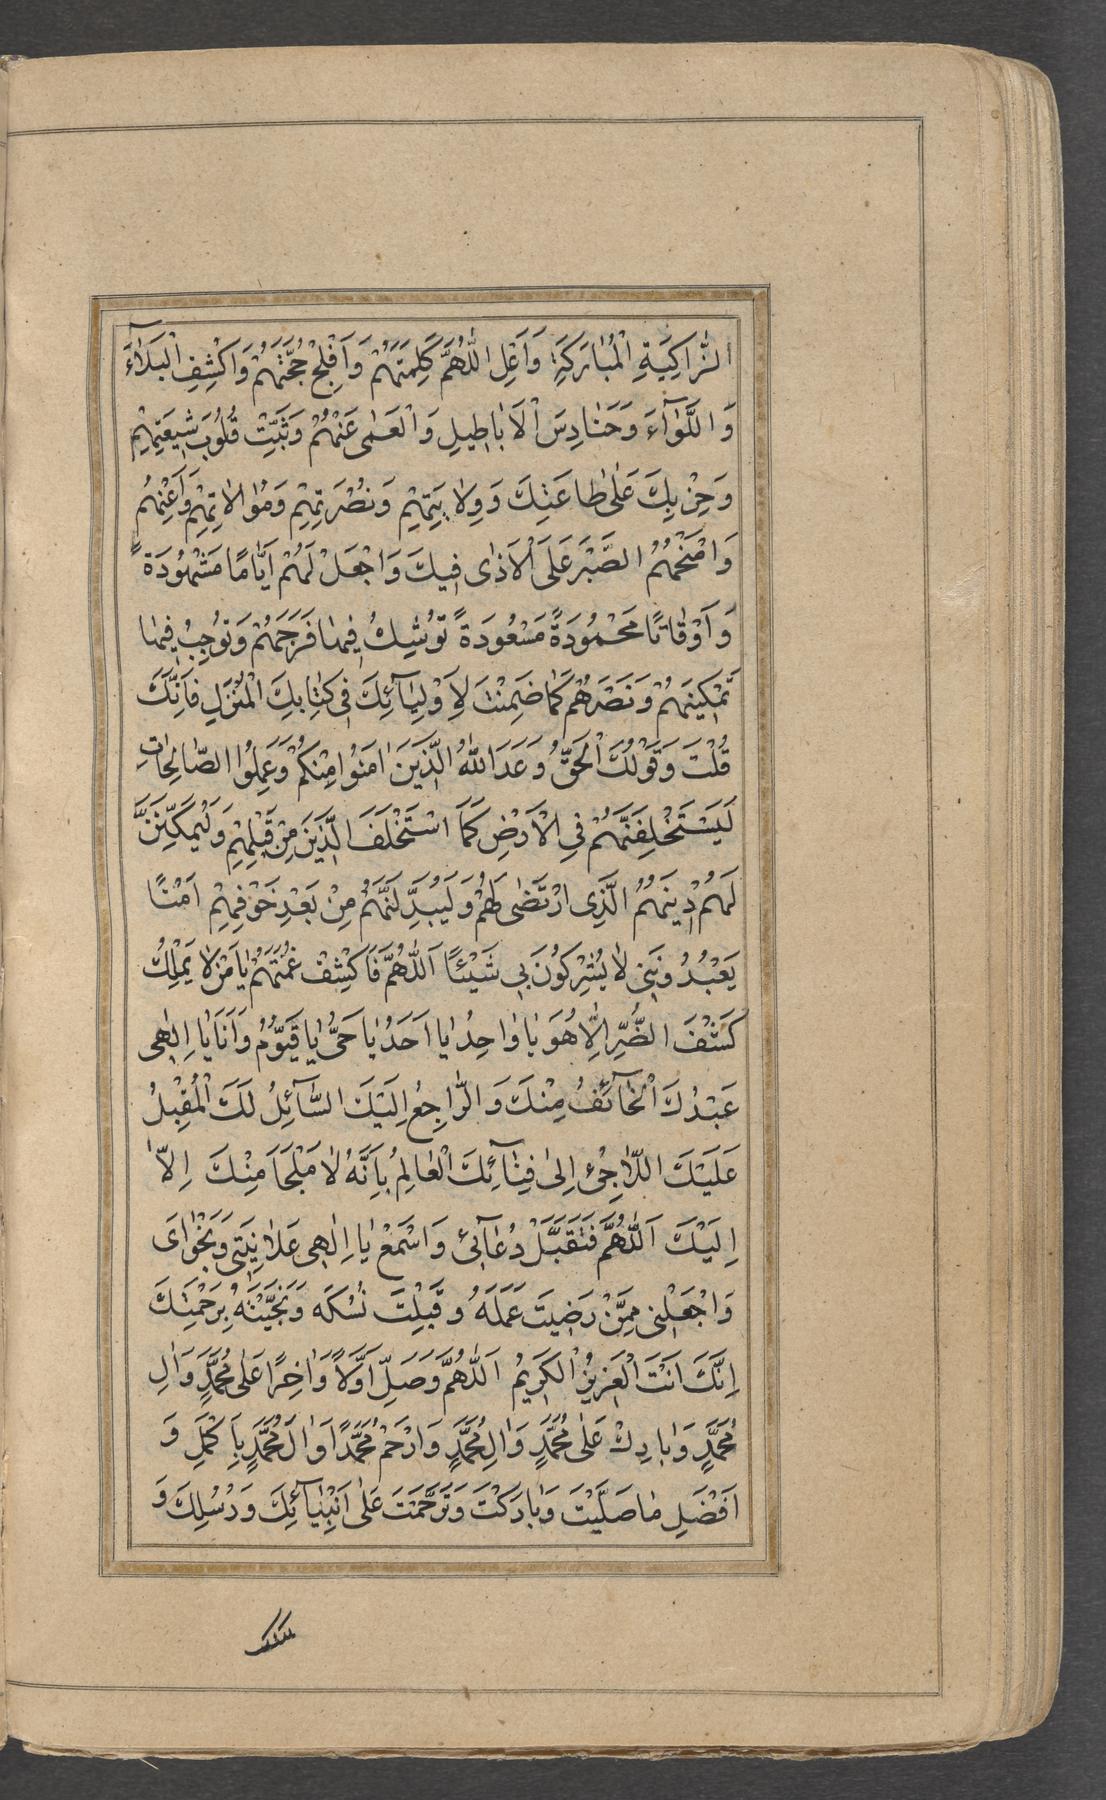 الزَّاكِيَةِ الْمُبٰارَكَةِ وَاَعْلِ اللّٰهُمَّ كَلِمَتَهُمْ وَاَفْلِجْ حُجَّتَهُمْ وَاكْشِفِ الْبَلٰآءَ
وَاللَّأْوٰآءَ وَحَنٰادِسَ الْاَبٰاطيلِ وَالْعَمٰى عَنْهُمْ وَثَبِّتْ قُلُوبَ شيعَتِهِمْ
وَحِزْبِكَ عَلىٰ طٰاعَتِكَ وَوِلٰايَتِهِمْ وَنُصْرَتِهِمْ وَمُوٰالاٰتِهِمْ وَاَعِنْهُمْ
وَامْنَحْهُمُ الصَّبْرَ عَلَى الْاَذٰى فيكَ وَاجْعَلْ لَهُمْ اَيّٰامًا مَشْهُودَةً
وَاَوْقٰاتًا مَحْمُودَةً مَسْعُودَةً تُوشِكُ فيهٰا فَرَجَهُمْ وَتُوجِبُ فيهٰا
تَمْكينَهُمْ وَنَصْرَهُمْ كَمٰا ضَمِنْتَ لِاَوْلِيٰآئِكَ فى كِتٰابِكَ الْمُنْزَلِ فَاِنَّكَ
قُلْتَ وَقَوْلُكَ الْحَقُّ وَعَدَ اللّٰهُ الَّذينَ اٰمَنُوا مِنْكُمْ وَعَمِلُوا الصّٰالِحٰاتِ
لَيَسْتَخْلِفَنَّهُمْ فِى الْاَرْضِ كَمَا اسْتَخْلَفَ الَّذينَ مِنْ قَبْلِهِمْ وَلَيُمَكِّنَنَّ
لَهُمْ دينَهُمُ الَّذِى ارْتَضٰى لَهُمْ وَلَيُبَدِّلَنَّهُمْ مِنْ بَعْدِ خَوْفِهِمْ اَمْنًا
يَعْبُدُونَنى لاٰ يُشْرِكُونَ بى شَيْئًا اَللّٰهُمَّ فَاكْشِفْ غُمَّتَهُمْ يٰا مَنْ لاٰ يَمْلِكُ
كَشْفَ الضُّرِّ اِلّٰا هُوَ يٰا وٰاحِدُ يٰا اَحَدُ يٰا حَىُّ يٰا قَيُّومُ وَاَنَا يٰا اِلٰهى
عَبْدُكَ الْخٰآئِفُ مِنْكَ وَالرّٰاجِعُ اِلَيْكَ السّٰآئِلُ لَكَ الْمُقْبِلُ
عَلَيْكَ اللّٰاجِئُ اِلىٰ فِنٰآئِكَ الْعٰالِمُ بِاَنَّهُ لاٰ مَلْجَاَ مِنْكَ اِلّٰا
اِلَيْكَ اَللّٰهُمَّ فَتَقَبَّلْ دُعٰآئى وَاسْمَعْ يٰا اِلٰهى عَلاٰنِيَتى وَنَجْوٰاىَ
وَاجْعَلْنى مِمَّنْ رَضيتَ عَمَلَهُ وَقَبِلْتَ نُسُكَه وَنَجَّيْتَهُ بِرَحْمَتِكَ
اِنَّكَ اَنْتَ الْعَزيزُ الْكَريمُ اَللّٰهُمَّ وَصَلِّ اَوَّلًا وَاٰخِرًا عَلىٰ مُحَمَّدٍ وَاٰلِ
مُحَمَّدٍ وَبٰارِكْ عَلىٰ مُحَمَّدٍ وَاٰلِ مُحَمَّدٍ وَارْحَمْ مُحَمَّدًا وَاٰلَ مُحَمَّدٍ بِاَكْمَلِ وَ
اَفْضَلِ مٰا صَلَّيْتَ وَبٰارَكْتَ وَتَرَحَّمْتَ عَلىٰ اَنْبِيٰآئِكَ وَرُسُلِكَ وَ